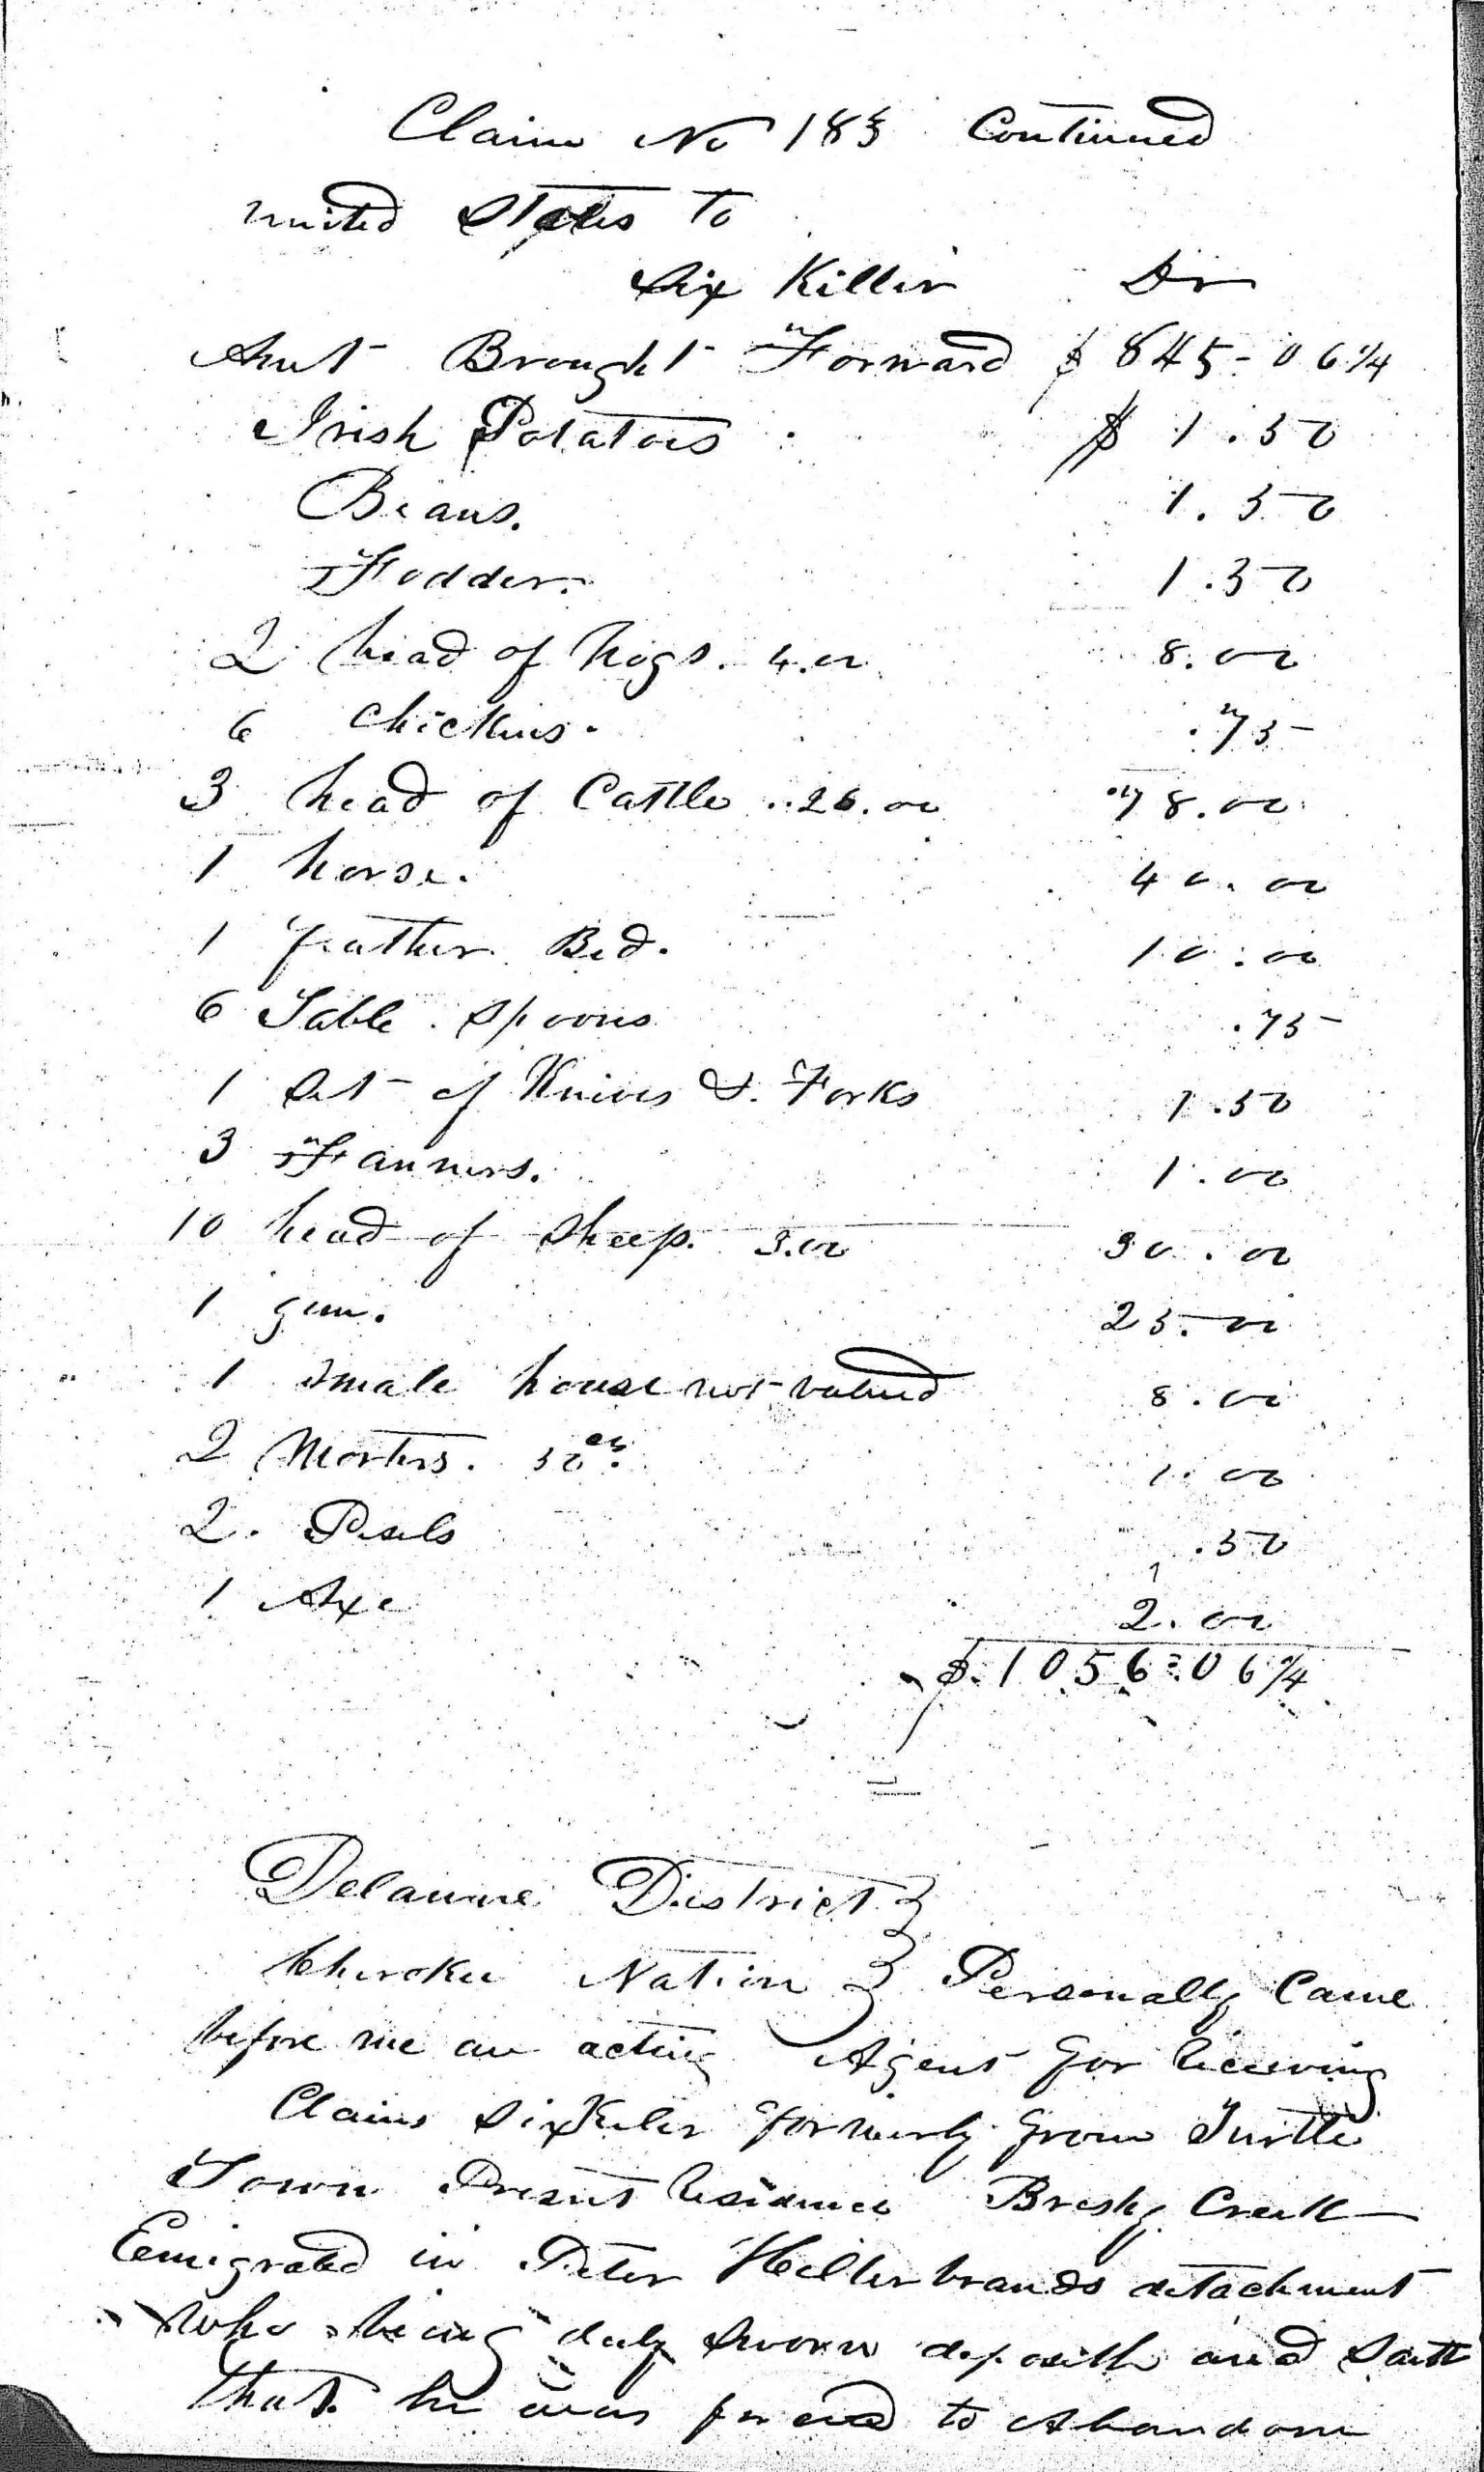 Claim No 185 Continued
United States To
Six Killer Dr
Amt Brought Forward $ 845-06 1/4
Irish Potatoes $ 1.50
Beans. 1.50
Fodder. 1.50
2 head of hogs. 4.00 8.00
6 Chickens. .75
3 head of Cattle .. 26.00 78.00
1 horse. 40.00
1 feather Bed. 10.00
6 Table Spoons .75
1 Set of Knives & Forks 1.50
3 Fanners. 1.00
10 head of Sheep. 3.00 30.00
1 gun. 25.00
1 Smale house not valued 8.00
2 Morters. 50 cs. 1.00
2. Pesels .50
1 Axe 2.00
$.1056=06 1/4
Delaware District }
Cherokee Nation } Personally Came
before me an acting Agent for receiving
Claims Sixkiler formerly from Turtle
Town Present residence Brushy Creek
Eemigrated in Peter Hilderbrands detachment
Who being duly Sworn deposith and Saith
that he was forced to Abandon